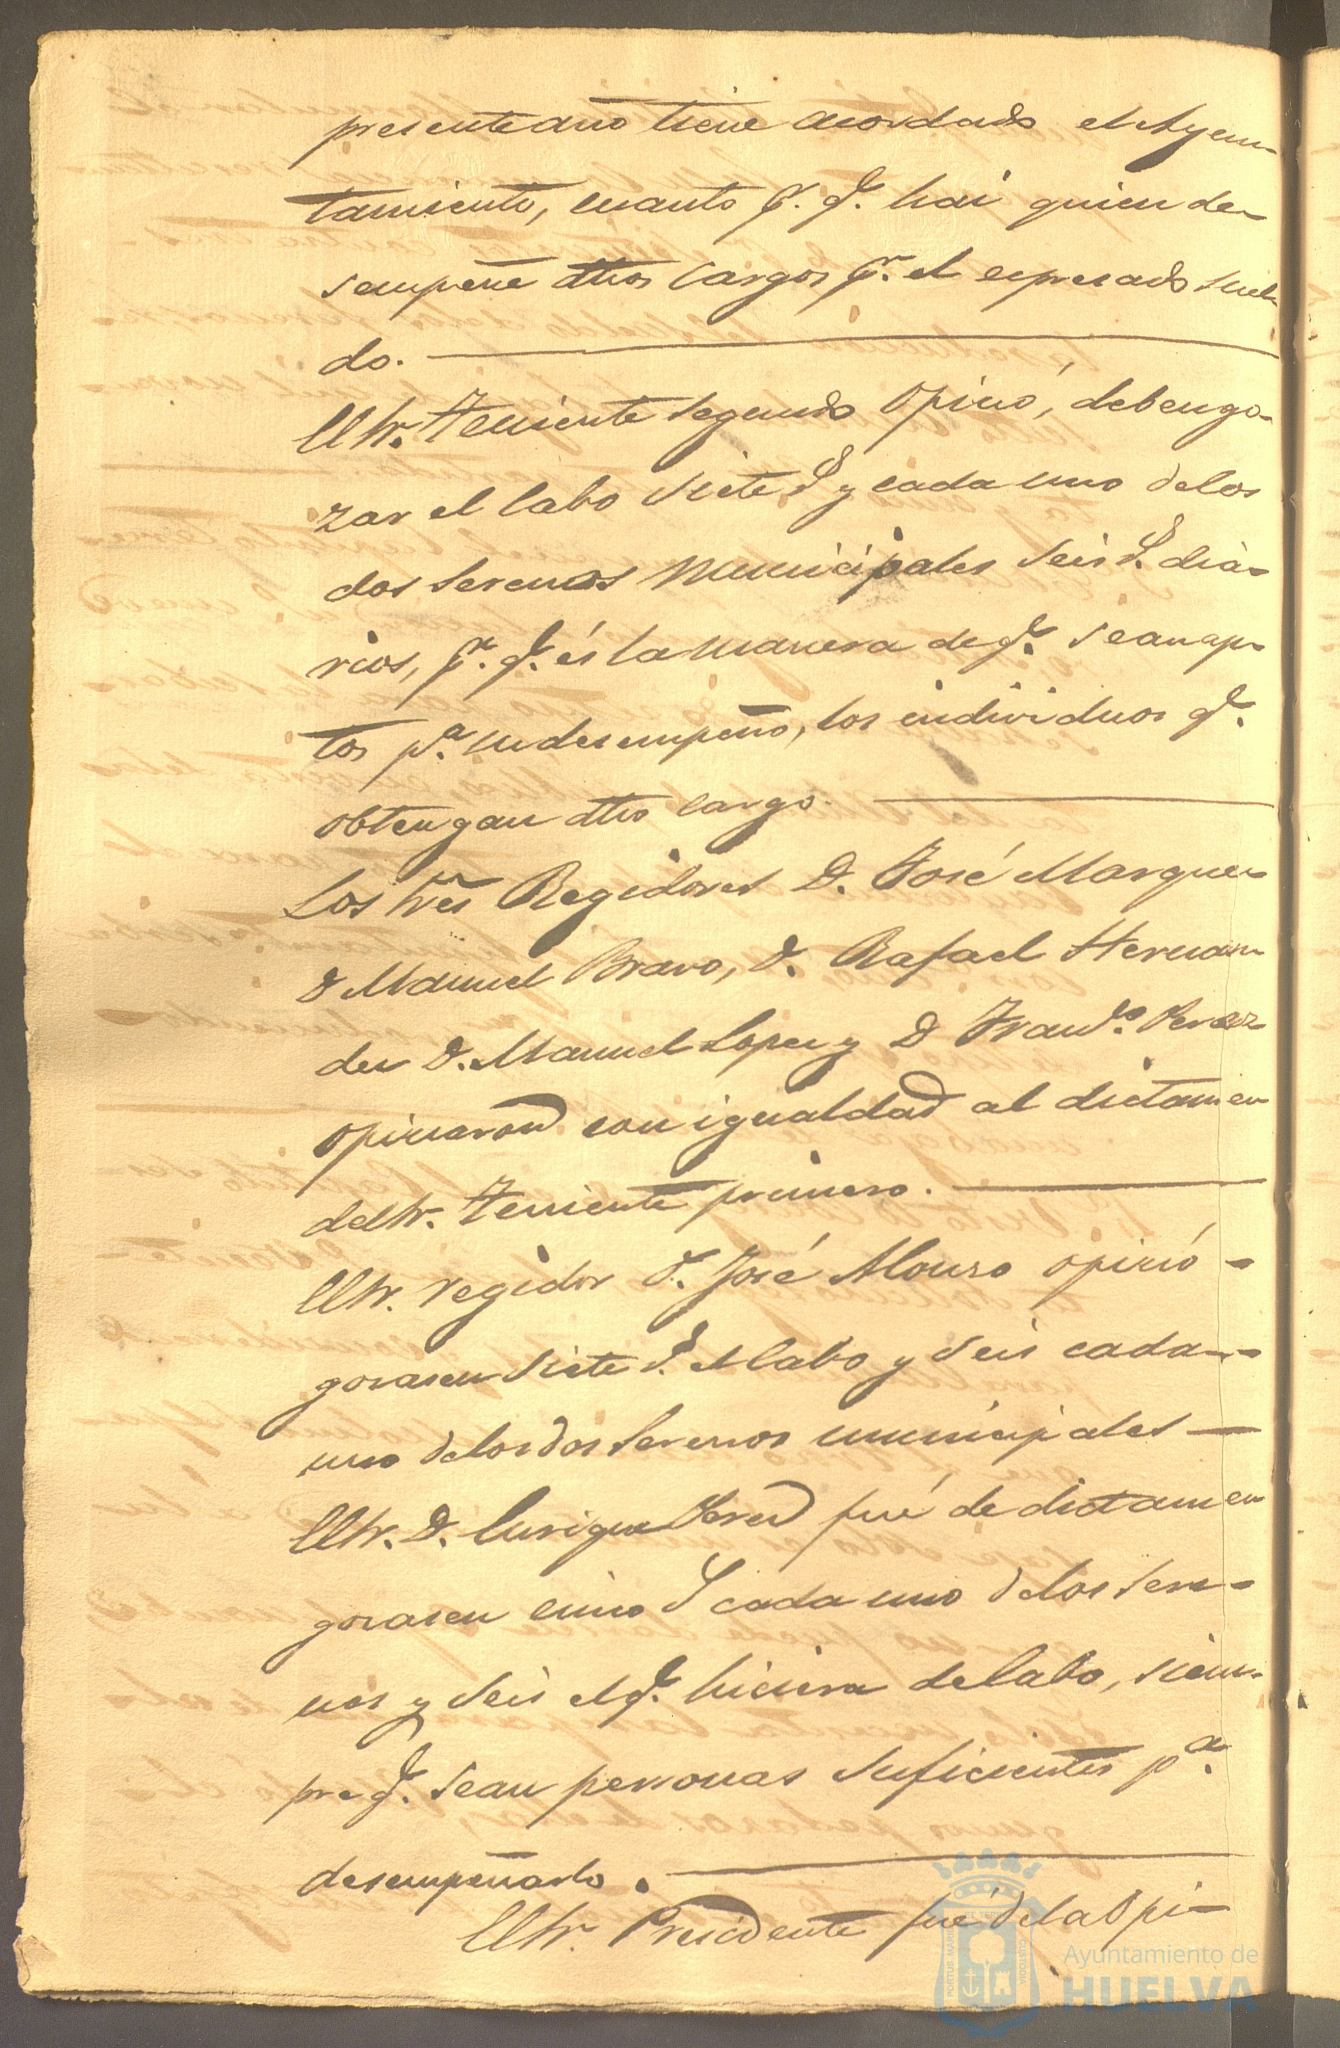 presente año tiene acordado el Ayun-
tamiento, cuanto pr. qe. hai quien de-
sempeñe dhos cargos pr. el espresado suel-
do.
El Sr. Teniente segundo opinó, deben go-
zar el Cabo siete rs y cada uno delos
dos serenos municipales seis rs. dia-
rios, pr. qe. és la manera de qe. sean ap-
tos pa. su desempeño, los individuos qe.
obtengan dho cargo.
Los Sres Regidores D. José Marquez
D Manuel Bravo, D. Rafael Hernan
dez D. Manuel Lopez y D Franco. Perez
opinaron con igualdad al dictamen
del Sr. Teniente primero.
El Sr. regidor D. José Alonso opinó -
gozasen siete rs. el Cabo y seis cada -
uno delos dos serenos municipales -
El Sr. D. Enrique fué de dictamen
gozasen cinco rs cada uno delos sere-
nos y seis el qe. hiciera de Cabo, siem-
pre qe. sean personas suficientes pa.
desempeñarlo.
El Sr. Presidente fué dela opi-
Ayuntamiento de
HUELVA